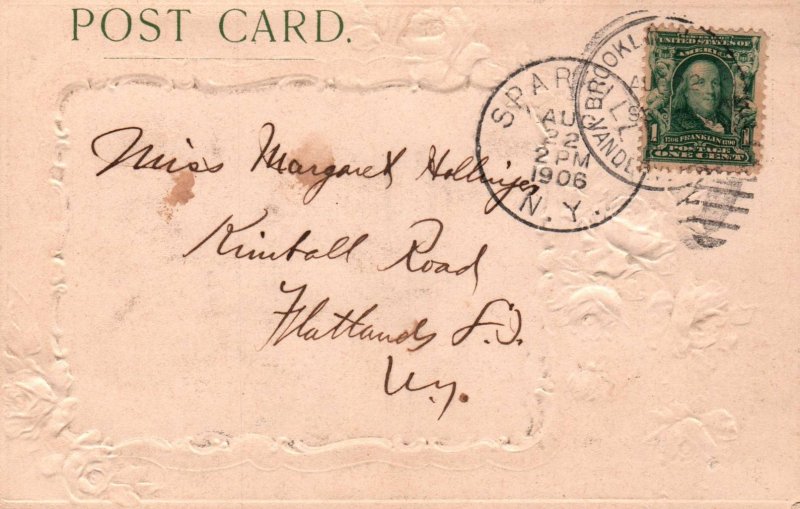 POST CARD.
BROOKLYN
VANDE
SPAR ILL
AU
22
2 PM
1906
N.Y.
UNITED STATES OF
AMERICA
1 1706 FRANKLIN 1790 1
POSTAGE
ONE CENT
Miss Margaret Hollinger
Kimball Road
Flatlands L.I.
N.Y.